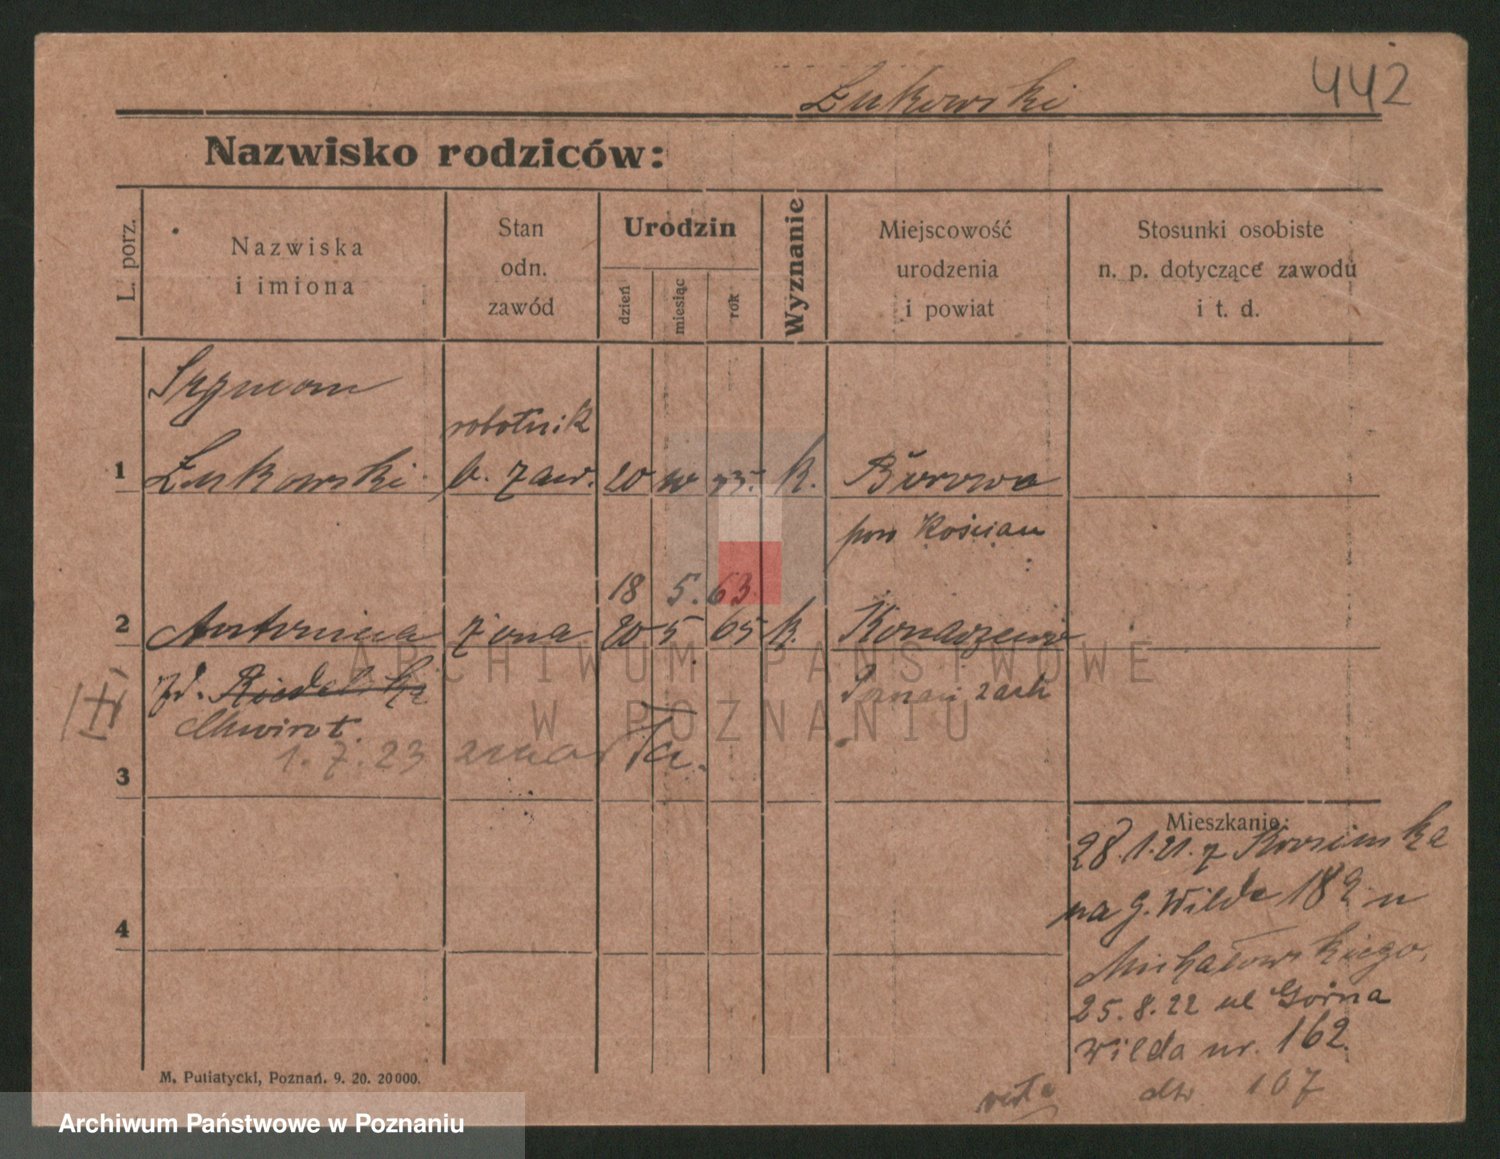 Łukowski
442
Nazwisko rodziców:
L. porz.
Nazwiska
i imiona
Stan
odn.
zawód
Urodzin
dzień
miesiąc
rok
Wyznanie
Miejscowość
urodzenia
i powiat
Stosunki osobiste
n. p. dotyczące zawodu
i t. d.
Szymon
robotnik
1 Łukowski b. zaw. 20 10 k. Borowo
pow Kościan
18 5. 63.
2 Antonina żona 20 5 65 k. Konarzewo
zd. Riedelska
Poznań zach
1.7.23 zmarła.
3
Mieszkanie:
28.1.21. z
na G. Wilda 182 u
4
Michałowskiego.
25.8.22 ul Górna
Wilda nr. 162.
107
M. Putiatycki, Poznań. 9. 20. 20000.
ARCHIWUM PAŃSTWOWE
W POZNANIU
Archiwum Państwowe w Poznaniu